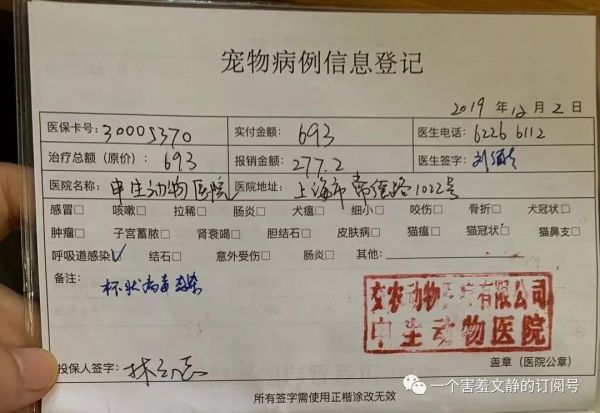 宠物病例信息登记
2019 年 12 月 2 日
医保卡号: 30005370 实付金额: 693 医生电话: 6226 6112
治疗总额（原价）: 693 报销金额: 277.2 医生签字: 刘
医院名称: 申生动物医院 医院地址: 上海市常德路1022号
感冒□ 咳嗽□ 拉稀□ 肠炎□ 犬瘟□ 细小□ 咬伤□ 骨折□ 犬冠状□
肿瘤□ 子宫蓄脓□ 肾衰竭□ 胆结石□ 皮肤病□ 猫瘟□ 猫冠状□ 猫鼻支□
呼吸道感染✓ 结石□ 意外受伤□ 肠炎□ 其他:
备注: 杯状病毒感染
动物 有限公司
申生动物医院
投保人签字: 林 盖章（医院公章）
所有签字需使用正楷涂改无效
一个害羞文静的订阅号